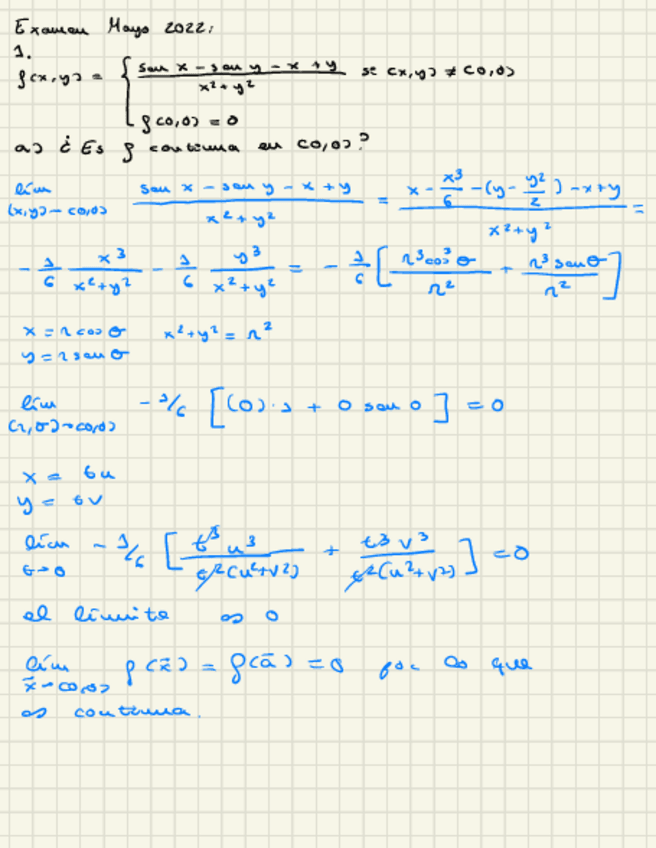 Examen Mayo 2022:
1.
f(x,y) = { (sen x - sen y - x + y) / (x² + y²) si (x,y) ≠ (0,0)
f(0,0) = 0
a) ¿ Es f continua en (0,0)?
lím (x,y)→(0,0) (sen x - sen y - x + y) / (x² + y²) = (x - x³/6 - (y - y²/2) - x + y) / (x² + y²) =
- 1/6 x³/(x²+y²) - 1/6 y³/(x²+y²) = - 1/6 [ r³cos³θ / r² + r³ senθ / r² ]
x = r cos θ x² + y² = r²
y = r sen θ
lím (r,θ)→(0,0) - 1/6 [ (0)·1 + 0 sen 0 ] = 0
x = tu
y = tv
lím t→0 - 1/6 [ t³ u³ / t²(u²+v²) + t³ v³ / t²(u²+v²) ] = 0
el límite es 0
lím x̄→(0,0) f(x̄) = f(ā) = 0 por lo que
es continua.